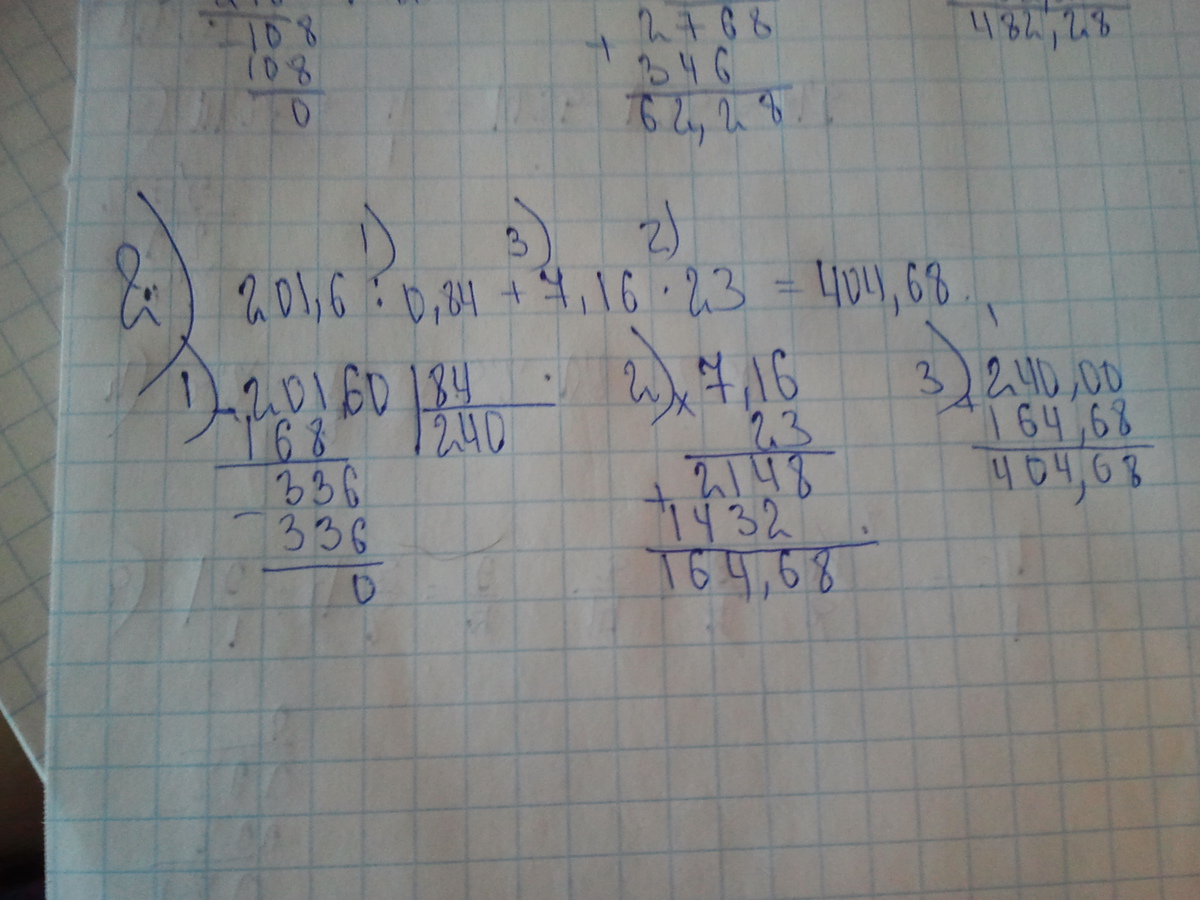 - 108
108
0
+ 2768
346
62,28
482,28
2)
1) 3) 2)
201,6 : 0,84 + 7,16 · 23 = 404,68
1) - 201,60 | 84
168 240
336
- 336
0
2) × 7,16
23
+ 2148
1432
164,68
3) + 240,00
164,68
404,68